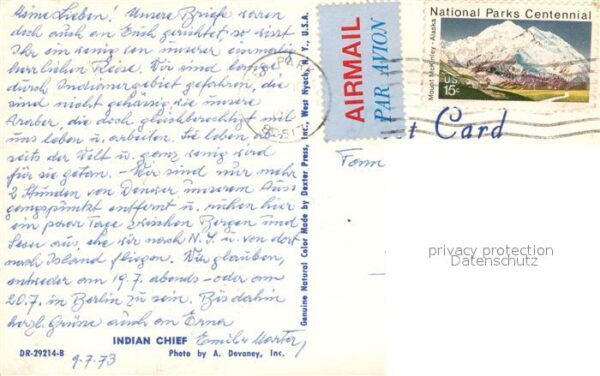 Meine Lieben! Unsere Briefe waren
doch auch an Euch gerichtet, so wisst
Ihr ein wenig von unserer einmalig
herrlichen Reise. Wir sind lange
durch Indianergebiet gefahren, die
sind nicht gehässig wie unsere
Araber, die doch gleichberechtigt mit
uns leben u. arbeiten. Sie leben ab-
seits der Welt u. ganz wenig wird
für sie getan. - Wir sind nur mehr
2 Stunden von Denver unserem Aus-
gangspunkt entfernt u. ruhen hier
ein paar Tage zwischen Bergen und
Seen aus, ehe wir nach N.Y. u. von dort
nach Island fliegen. Wir glauben,
entweder am 19.7. abends - oder am
20.7. in Berlin zu sein. Bis dahin
herzl. Grüsse auch an Erna
Emil u.
INDIAN CHIEF
DR-29214-B
Photo by A. Devaney, Inc.
9-7.73
Genuine Natural Color Made by Dexter Press, Inc., West Nyack, N. Y., U.S.A.
AIRMAIL
PAR AVION
National Parks Centennial
Mount McKinley · Alaska
U.S.
15c
Card
privacy protection
Datenschutz